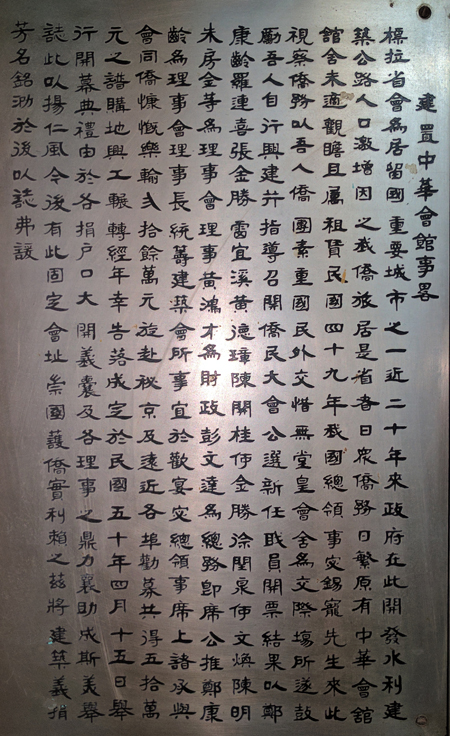 建置中華會館事畧
標拉省會為居留國重要城市之一近二十年來政府在此開發水利建
築公路人口激增因之我僑旅居是省者日眾僑務日繁原有中華會舘
舘舍未適觀瞻且屬租賃民國四十九年我國總領事安錫寵先生來此
視察僑務以吾人僑團素重國民外交惜無堂皇會舍為交際場所遂鼓
勵吾人自行興建并指導召開僑民大會公選新任職員開票結果以鄭
康齡羅連喜張金勝雷宜溪黃德璋陳開桂伍金勝徐閏泉伍文煥陳明
朱房金等為理事會理事黃鴻才為財政彭文達為總務即席公推鄭康
齡為理事會理事長統籌建築會所事宜於歡宴安總領事席上諸承與
會同僑慷慨樂輸弍拾餘萬元旋赴祕京及遠近各埠勸募共得五拾萬
元之譜購地興工輾轉經年幸告落成定於民國五十年四月十五日舉
行開幕典禮由於各捐戶口大開義囊及各理事之鼎力襄助成斯美舉
誌此以揚仁風今後有此固定會址崇國護僑實利賴之茲將建築義捐
芳名銘泐於後以誌弗諼